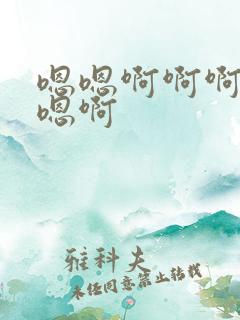 嗯嗯啊啊啊
嗯啊
雅科夫
未经同意禁止转载